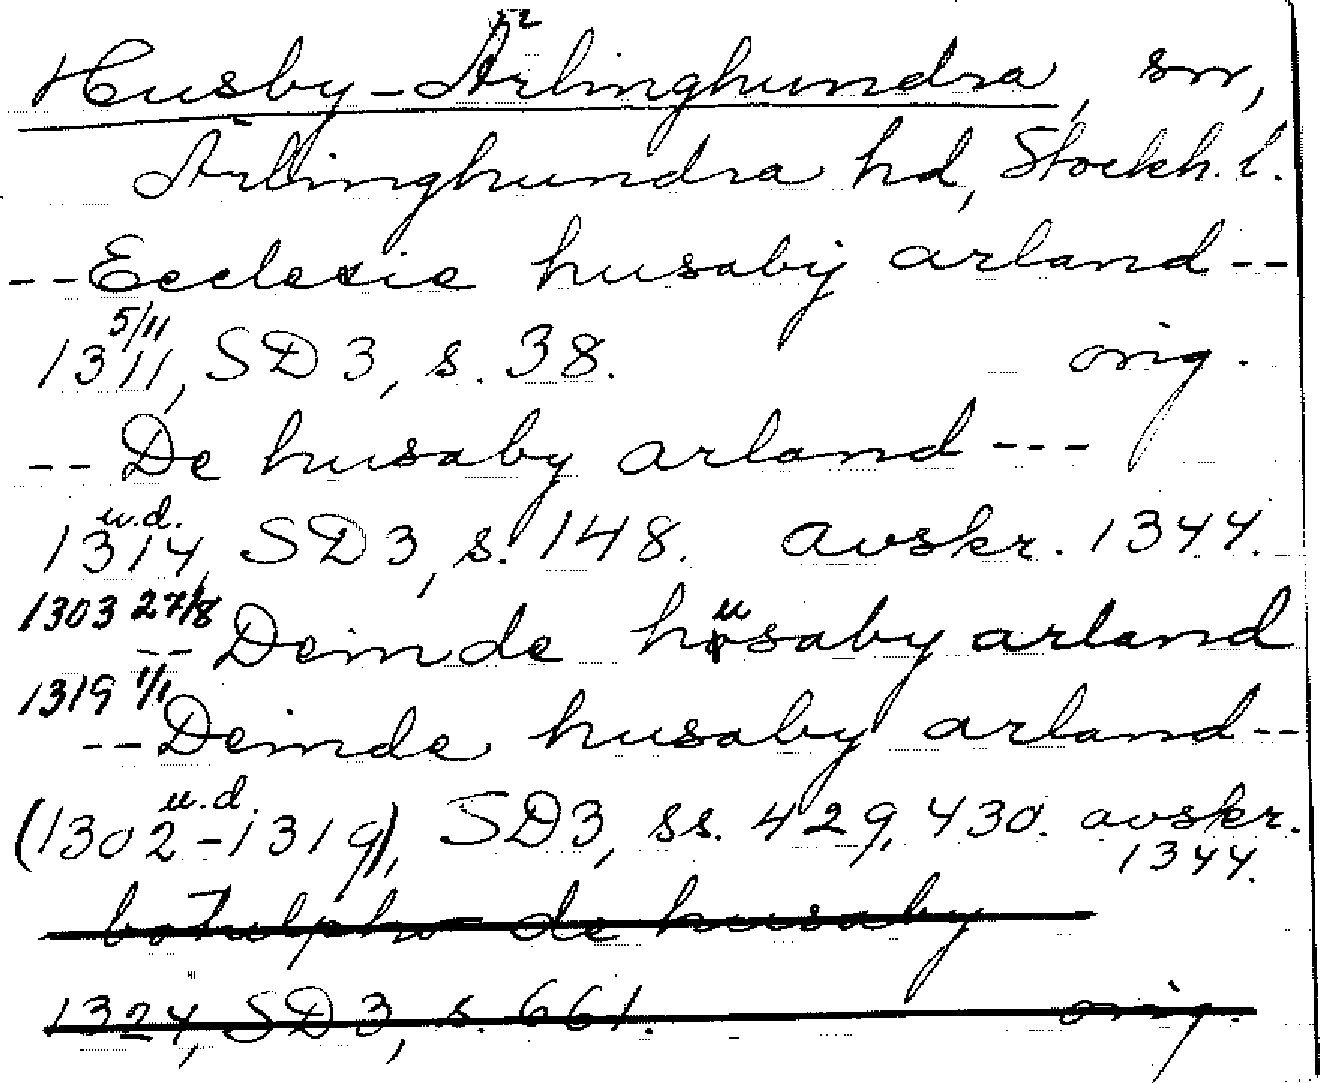 Husby-Ärlinghundra, sn,
Ärlinghundra hd, Stockh. l.
--Ecclesie husaby arland--
13 5/11 11, SD 3, s. 38. orig.
-- De husaby arland---
u.d.
1314, SD 3, s. 148. avskr. 1344.
1303 27/8 -- Deinde husaby arland
1319 1/1
--Deinde husaby arland--
u.d.
(1302-1319), SD3, ss. 429, 430. avskr. 1344.
botulpho de husaby
1324, SD 3, s. 661. orig.